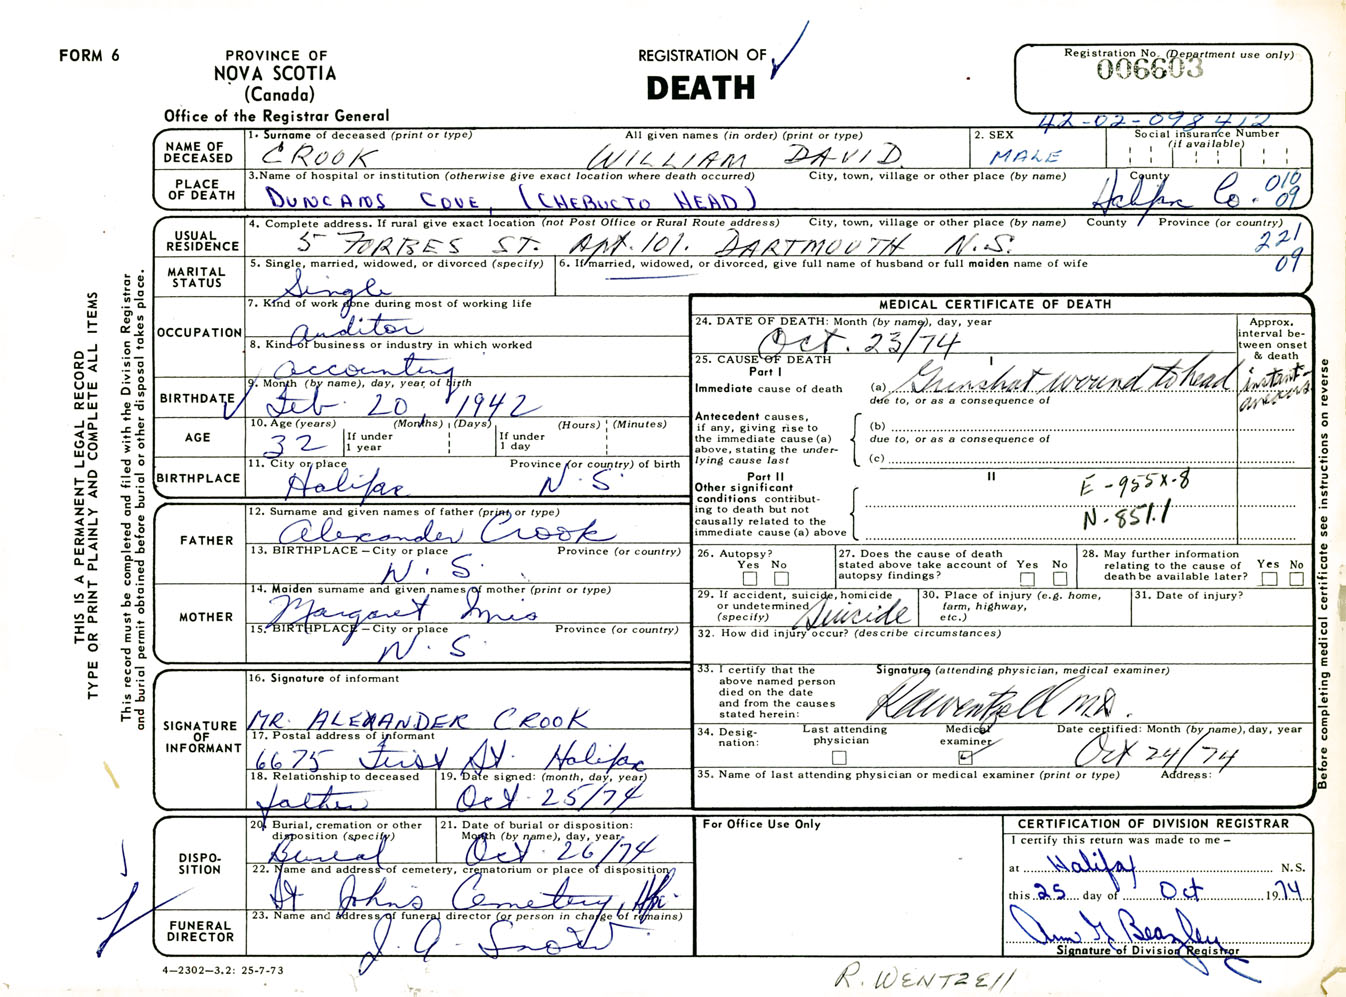 FORM 6
PROVINCE OF
NOVA SCOTIA
(Canada)
Office of the Registrar General
REGISTRATION OF
DEATH
Registration No. (Department use only)
006603
42-02-098412
NAME OF DECEASED
1. Surname of deceased (print or type) All given names (in order) (print or type)
CROOK WILLIAM DAVID
2. SEX
MALE
Social insurance Number
(if available)
PLACE OF DEATH
3. Name of hospital or institution (otherwise give exact location where death occurred) City, town, village or other place (by name) County
DUNCANS COVE, (CHEBUCTO HEAD) Halifax Co. 010
09
USUAL RESIDENCE
4. Complete address. If rural give exact location (not Post Office or Rural Route address) City, town, village or other place (by name) County Province (or country)
5 FORBES ST. Apt. 101. DARTMOUTH N.S. 221
09
MARITAL STATUS
5. Single, married, widowed, or divorced (specify)
Single
6. If married, widowed, or divorced, give full name of husband or full maiden name of wife
OCCUPATION
7. Kind of work done during most of working life
Auditor
8. Kind of business or industry in which worked
accounting
BIRTHDATE
9. Month (by name), day, year of birth
Feb. 20, 1942
AGE
10. Age (years) (Months) (Days) (Hours) (Minutes)
32
If under 1 year
If under 1 day
BIRTHPLACE
11. City or place Province (or country) of birth
Halifax N.S.
FATHER
12. Surname and given names of father (print or type)
Alexander Crook
13. BIRTHPLACE – City or place Province (or country)
N.S.
MOTHER
14. Maiden surname and given names of mother (print or type)
Margaret
15. BIRTHPLACE – City or place Province (or country)
N.S.
SIGNATURE OF INFORMANT
16. Signature of informant
MR. ALEXANDER CROOK
17. Postal address of informant
6675 St. Halifax
18. Relationship to deceased
father
19. Date signed: (month, day, year)
Oct. 25/74
DISPO-
SITION
20. Burial, cremation or other disposition (specify)
Burial
21. Date of burial or disposition:
Month (by name), day, year
Oct. 26/74
22. Name and address of cemetery, crematorium or place of disposition
St John's Cemetery, Hfx.
FUNERAL DIRECTOR
23. Name and address of funeral director (or person in charge of remains)
J. A. Snow
MEDICAL CERTIFICATE OF DEATH
24. DATE OF DEATH: Month (by name), day, year
Oct. 23/74
Approx. interval be-
tween onset & death
25. CAUSE OF DEATH
Part I
I
Immediate cause of death
(a) Gunshot wound to head
instant-
aneous
due to, or as a consequence of
Antecedent causes, if any, giving rise to the immediate cause (a) above, stating the under-
lying cause last
(b)
due to, or as a consequence of
(c)
Part II
II
Other significant conditions contribut-
ing to death but not causally related to the immediate cause (a) above
E-955X-8
N-851.1
26. Autopsy?
Yes No
27. Does the cause of death stated above take account of autopsy findings?
Yes No
28. May further information relating to the cause of death be available later?
Yes No
29. If accident, suicide, homicide or undetermined (specify)
Suicide
30. Place of injury (e.g. home, farm, highway, etc.)
31. Date of injury?
32. How did injury occur? (describe circumstances)
33. I certify that the above named person died on the date and from the causes stated herein:
Signature (attending physician, medical examiner)
R Wentzell MD.
34. Desig-
nation:
Last attending physician
Medical examiner
Date certified: Month (by name), day, year
Oct 24/74
35. Name of last attending physician or medical examiner (print or type) Address:
For Office Use Only
CERTIFICATION OF DIVISION REGISTRAR
I certify this return was made to me –
at Halifax N.S.
this 25 day of Oct 1974
Beazley
Signature of Division Registrar
4–2302–3.2: 25-7-73
R. WENTZELL
THIS IS A PERMANENT LEGAL RECORD
TYPE OR PRINT PLAINLY AND COMPLETE ALL ITEMS
This record must be completed and filed with the Division Registrar
and burial permit obtained before burial or other disposal takes place.
Before completing medical certificate see instructions on reverse